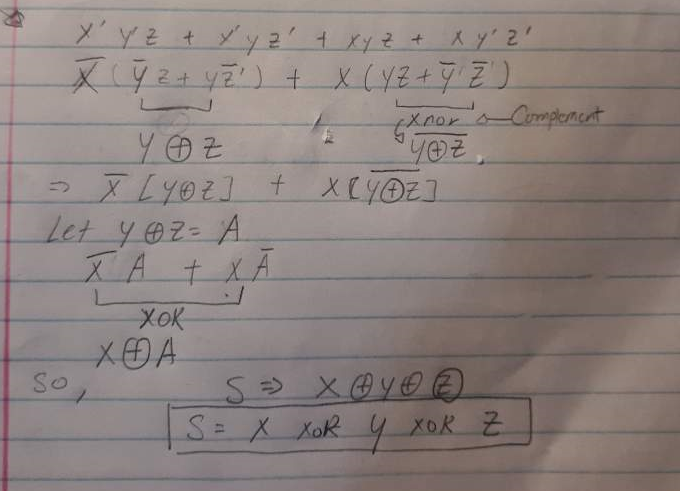 x' y' z + x' y z' + x y z + x y' z'
X̅ ( y̅ z + y z̅' ) + x ( y z + y̅' z̅' )
xnor Complement
y ⊕ z y̅⊕̅z̅
⇒ x̅ [y⊕z] + x [y̅⊕̅z̅]
Let y ⊕ z = A
x̅ A + x A̅
XOR
x ⊕ A
So, S ⇒ x ⊕ y ⊕ z
S = x xoR y xoR z